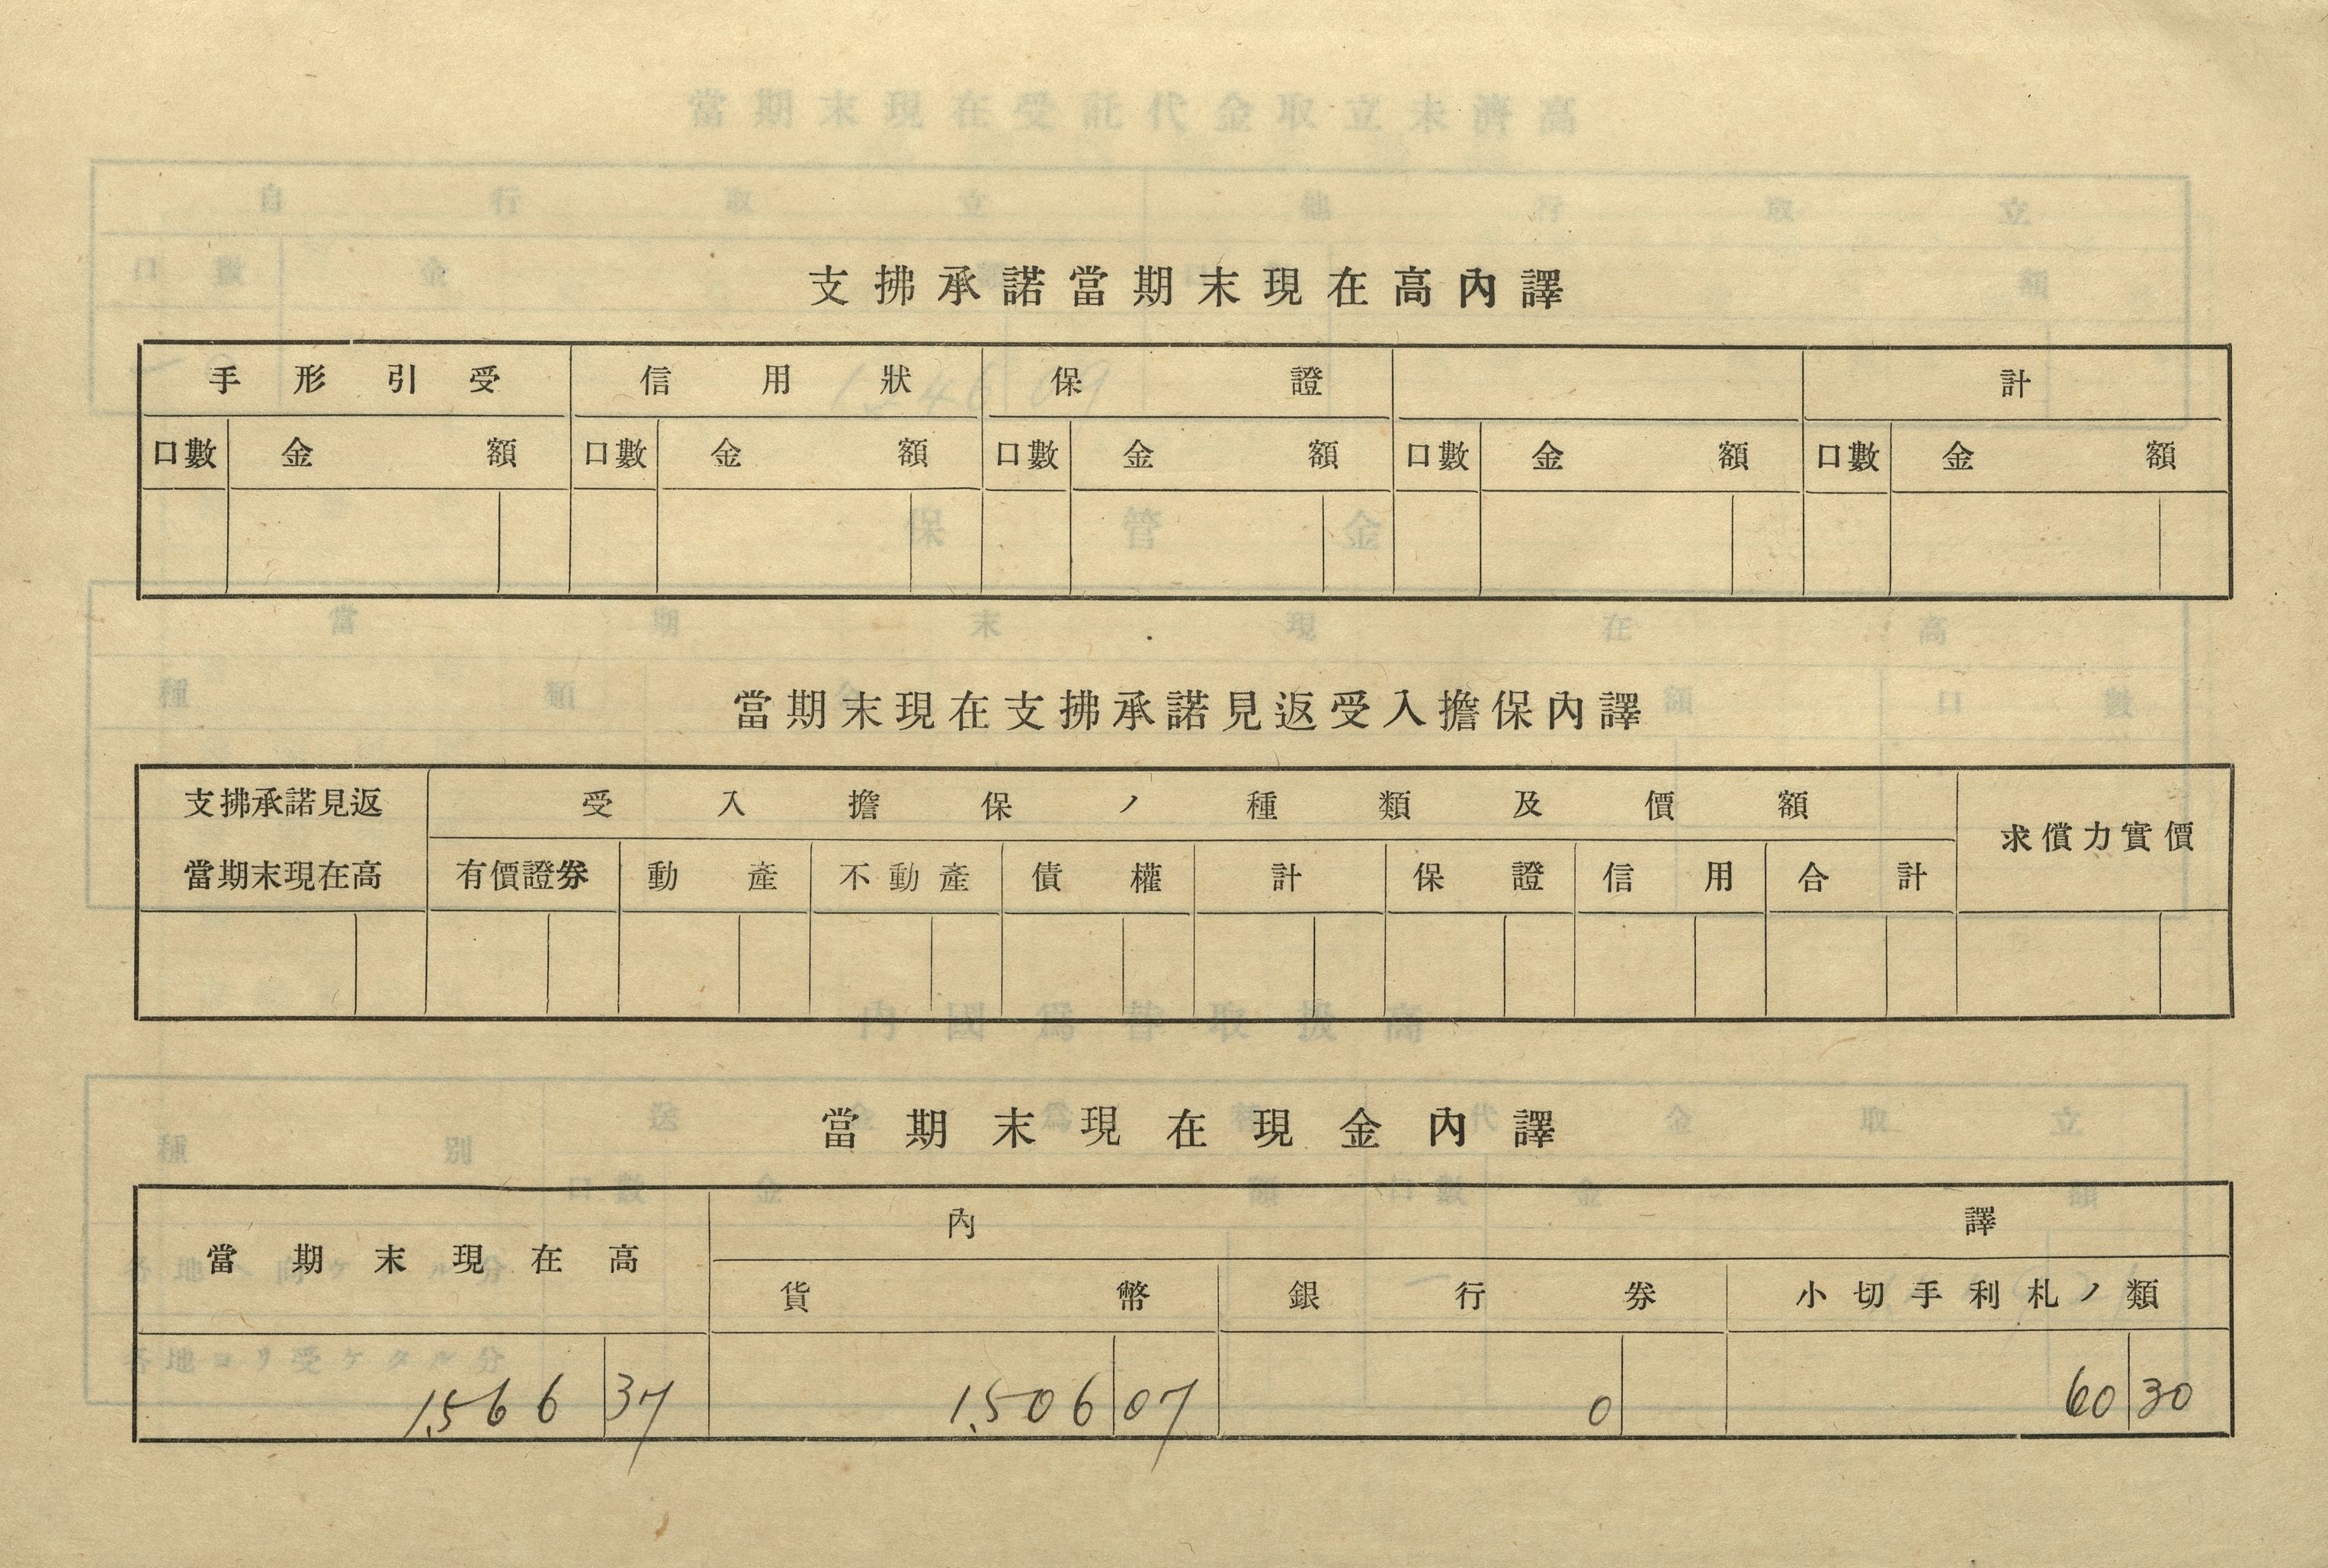 支拂承諾當期末現在高內譯
手形引受 信用狀 保證 計
口數 金額 口數 金額 口數 金額 口數 金額 口數 金額
當期末現在支拂承諾見返受入擔保內譯
支拂承諾見返 受入擔保ノ種類及價額
求償力實價
當期末現在高 有價證券 動產 不動產 債權 計 保證 信用 合計
當期末現在現金內譯
內譯
當期末現在高
貨幣 銀行券 小切手利札ノ類
1,566 37 1,506 07 0 60 30